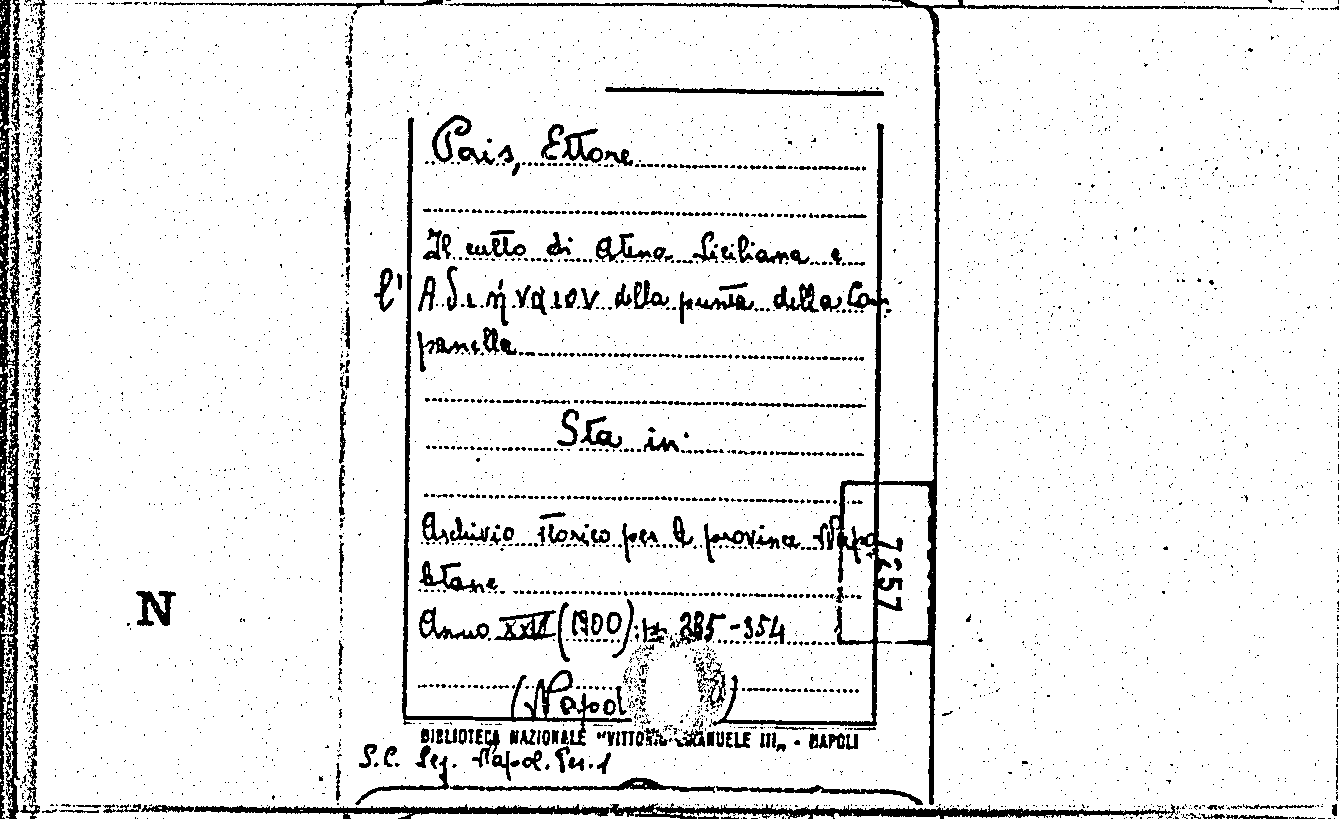 Pais, Ettore
Il culto di Atena Siciliana e
l' Ἀθήναιον della punta della Cam-
panella
Sta in:
Archivio storico per le province Napo
letane
Anno XXV (1900): p. 285-354
(Napoli)
BIBLIOTECA NAZIONALE "VITTORIO EMANUELE III" - NAPOLI
S.C. Sez. Napol. Per. 1
7657
N